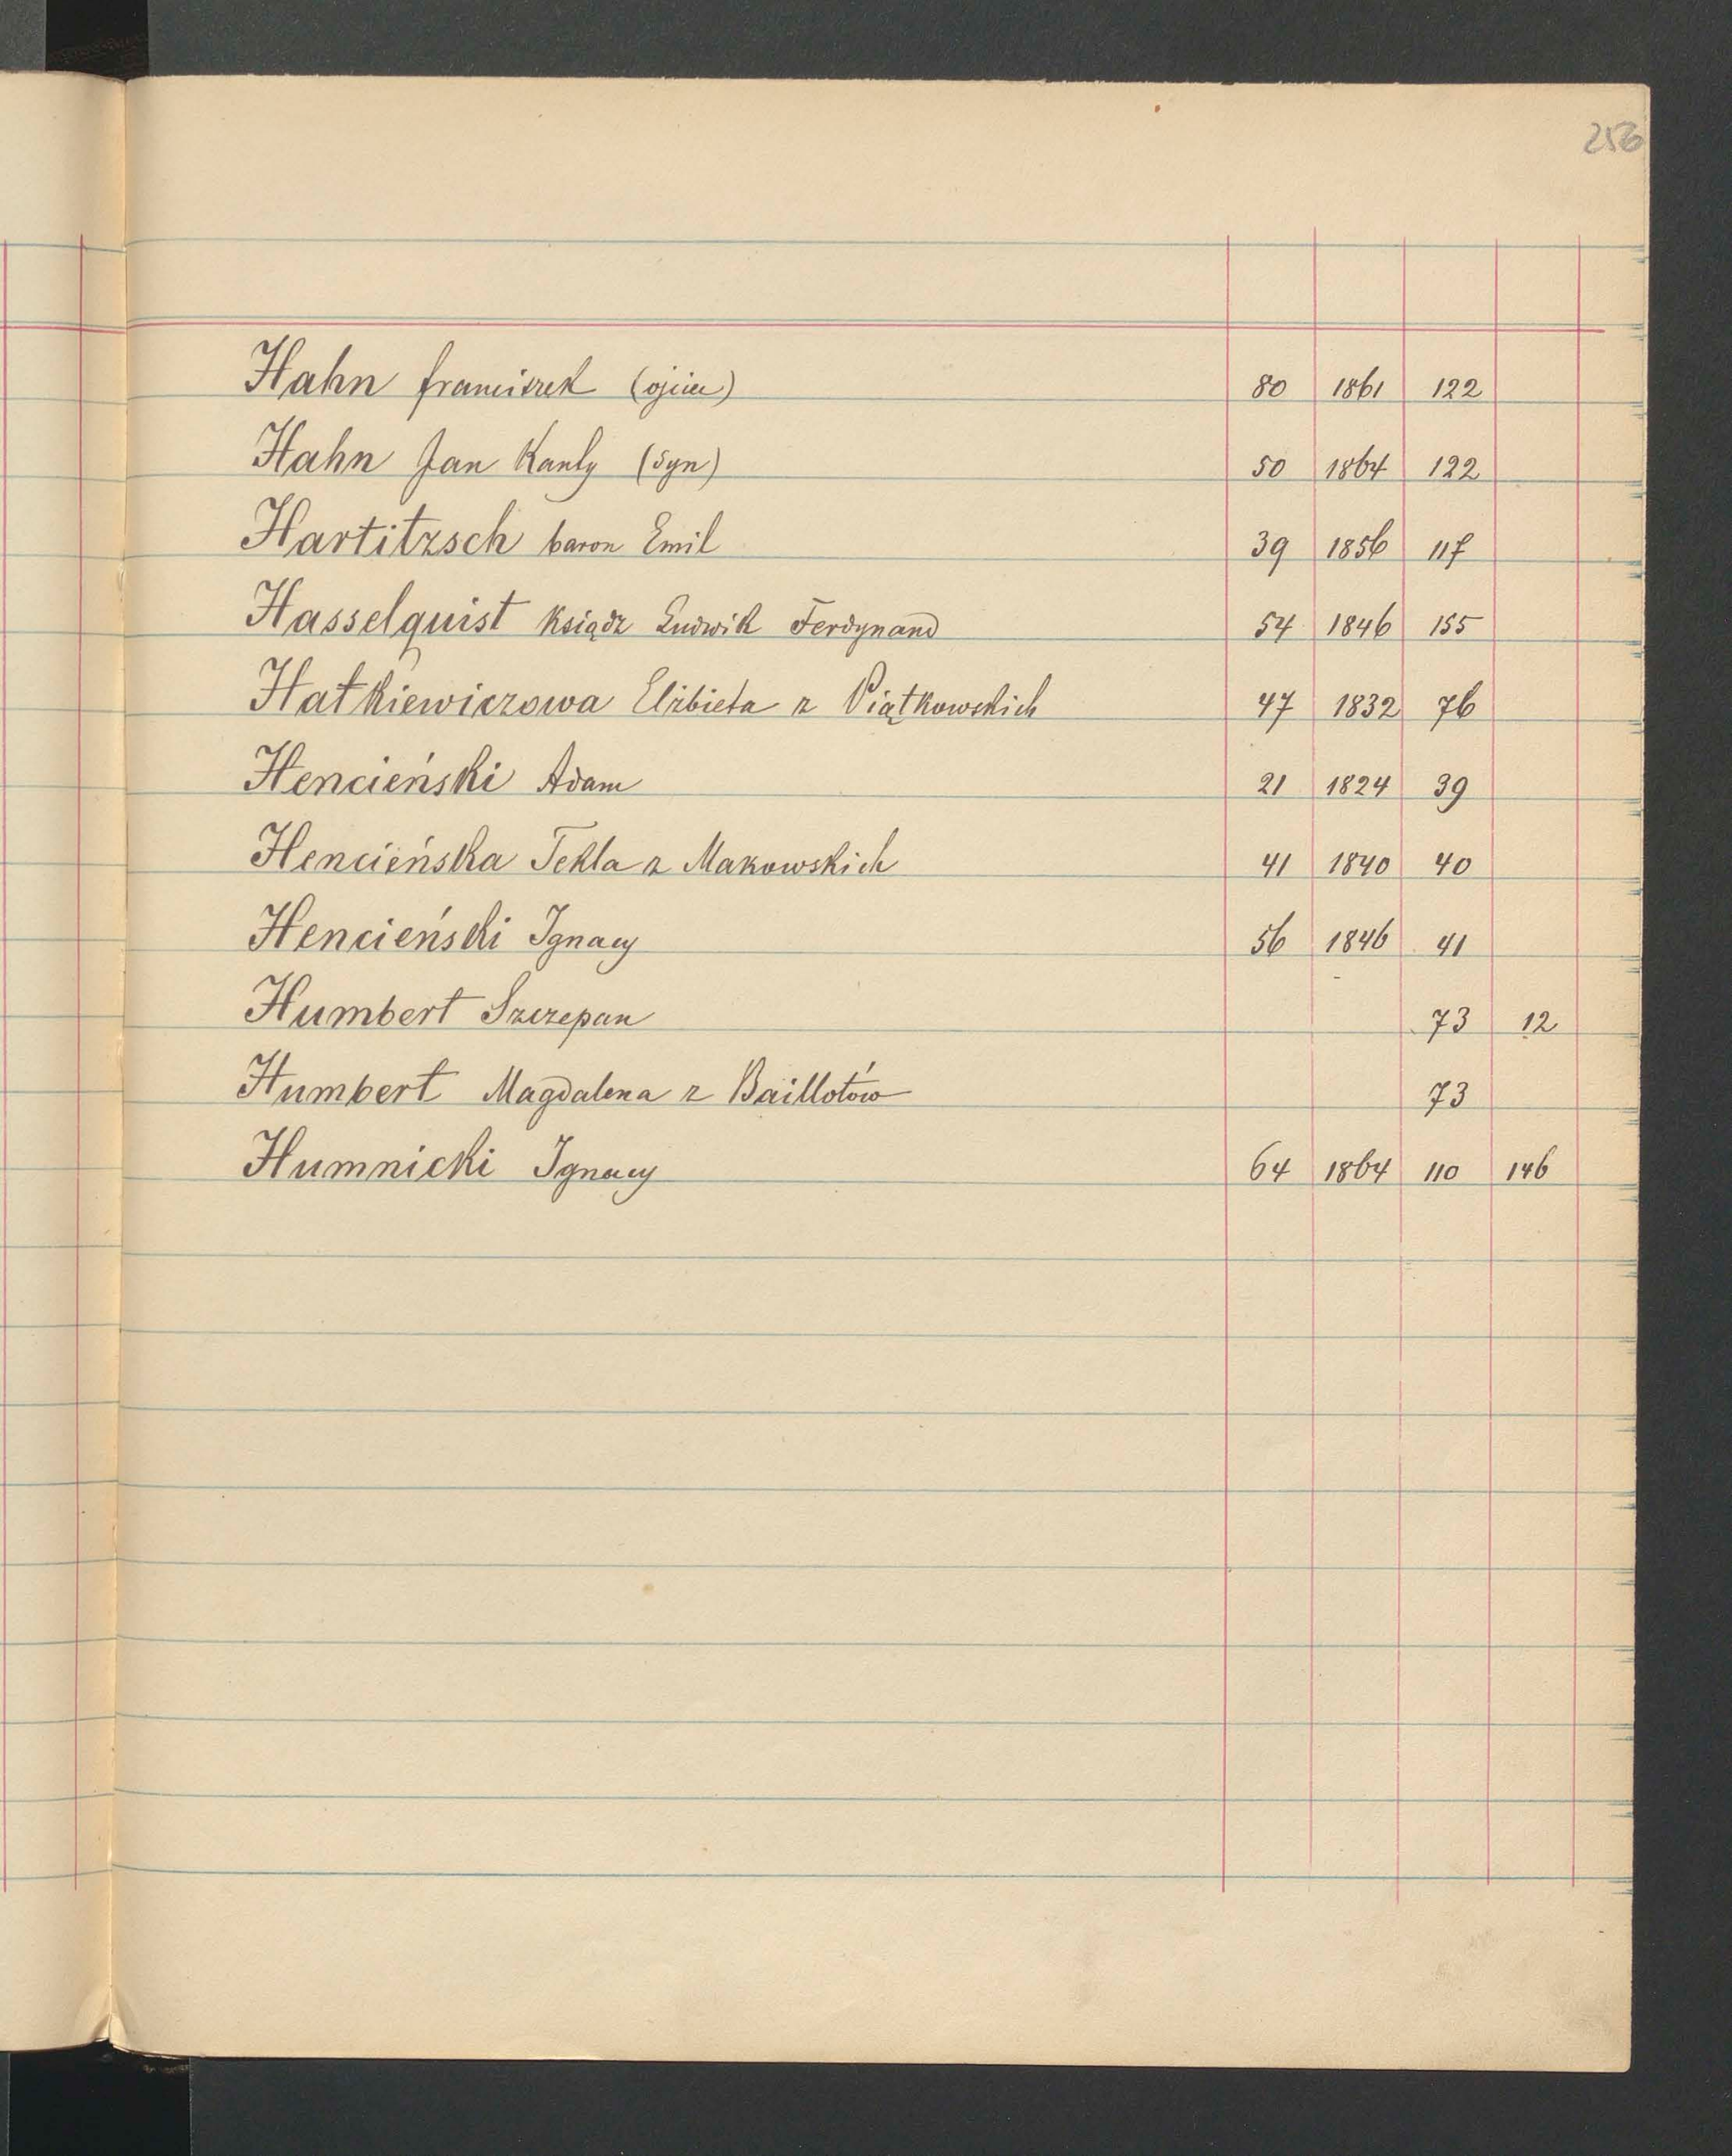 256
Hahn Franciszek (ojciec) 80 1861 122
Hahn Jan Kanty (syn) 50 1864 122
Hartitzsch baron Emil 39 1856 117
Hasselquist Ksiądz Ludwik Ferdynand 54 1846 155
Hatkiewiczowa Elżbieta z Piątkowskich 47 1832 76
Hencieński Adam 21 1824 39
Hencieńska Tekla z Makowskich 41 1840 40
Hencieński Ignacy 56 1846 41
Humbert Szczepan 73 12
Humbert Magdalena z Baillotów 73
Humnicki Ignacy 64 1864 110 146